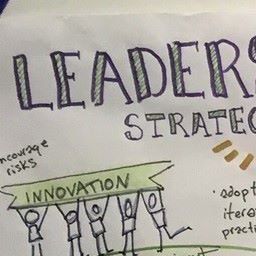 LEADERS
STRATEG
ncourage
risks
INNOVATION
· adopt
itera
practi